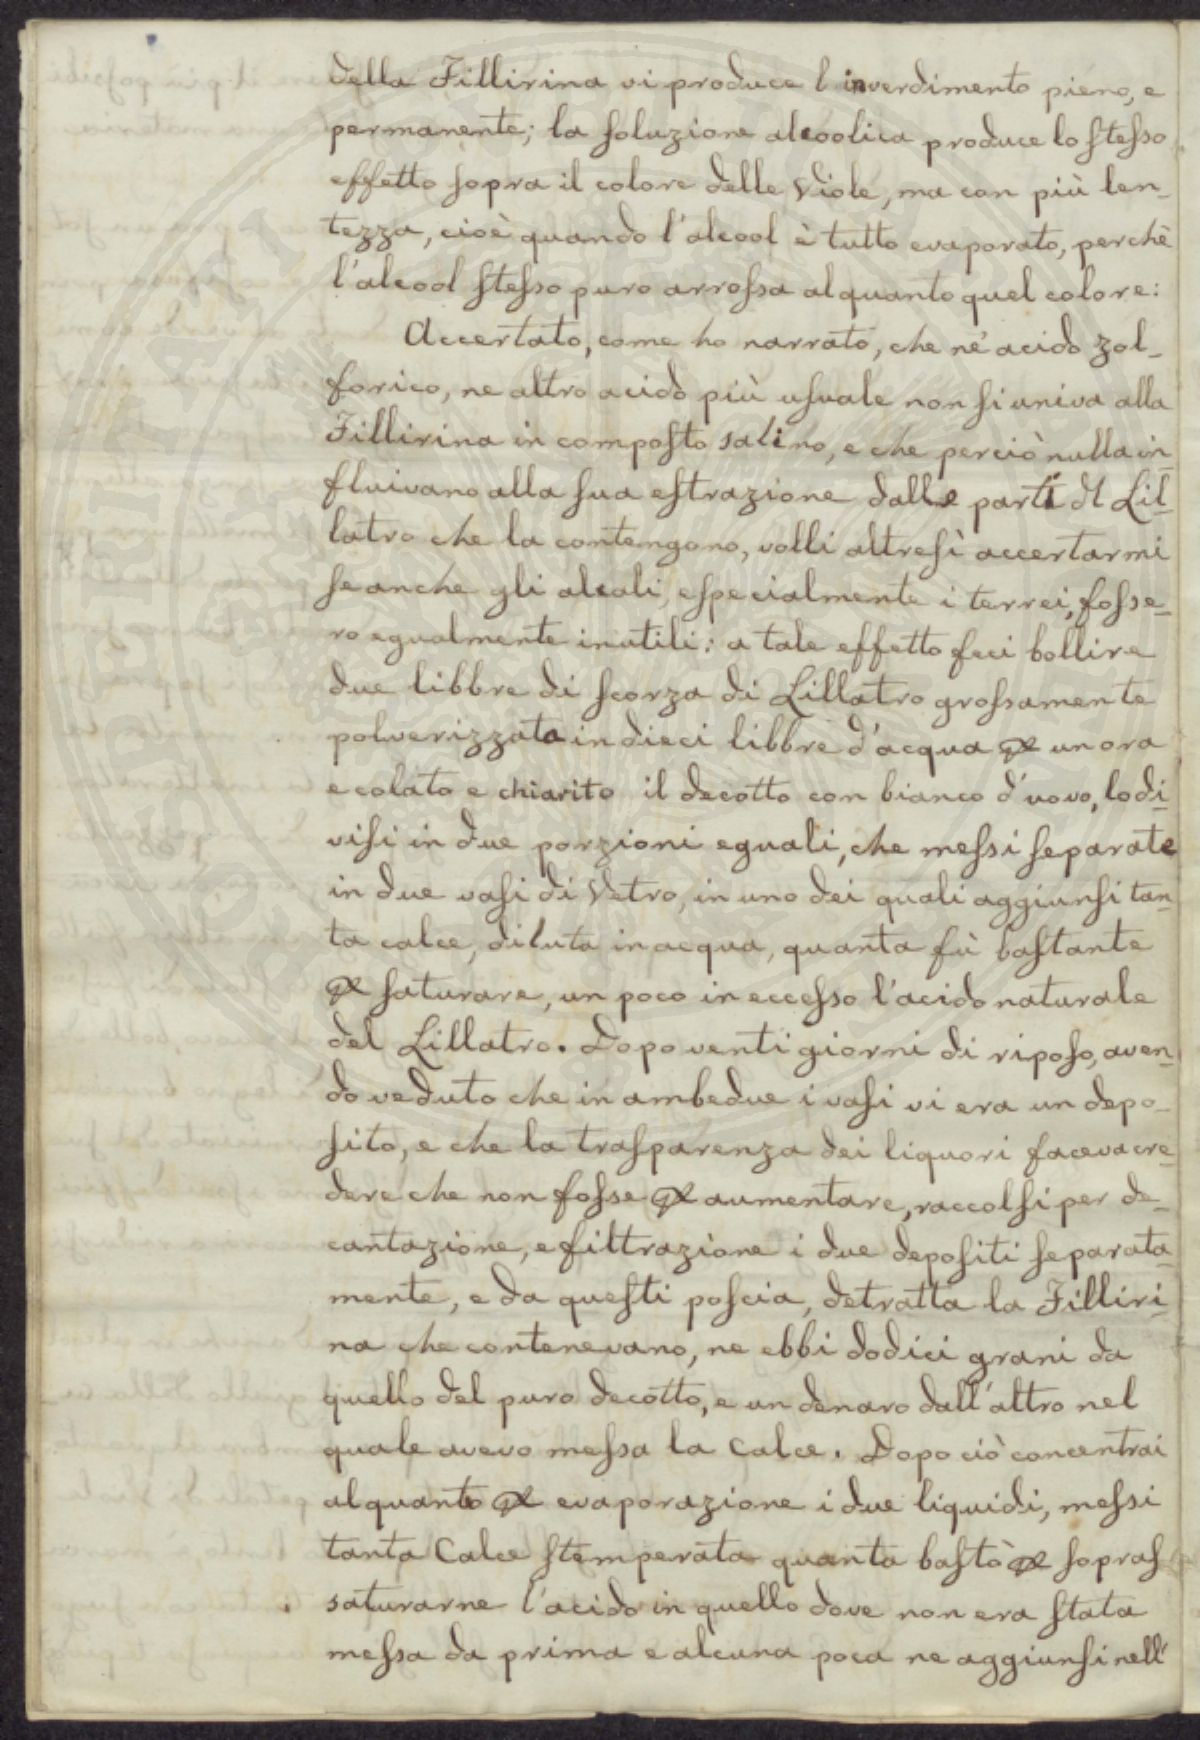 della Fillirina vi produce l inverdimento pieno, e
permanente; la soluzione alcoolica produce lo stesso
effetto sopra il colore delle Viole, ma con più len-
tezza, cioè quando l'alcool è tutto evaporato, perchè
l'alcool stesso puro arrossa alquanto quel colore:
Accertato, come ho narrato, che nè acido zol-
forico, ne altro acido più usuale non si univa alla
Fillirina in composto salino, e che perciò nulla in-
fluivano alla sua estrazione dalle parti del Lil-
latro che la contengono, volli altresì accertarmi
se anche gli alcali, especialmente i terrei, fosse-
ro egualmente inutili: a tale effetto feci bollire
due libbre di scorza di Lillatro grossamente
polverizzata in dieci libbre d'acqua p un ora
e colato e chiarito il decotto con bianco d'uovo, lo di-
visi in due porzioni eguali, che messi separate
in due vasi di Vetro, in uno dei quali aggiunsi tan-
ta calce, diluta in acqua, quanta fù bastante
p saturare, un poco in eccesso l'acido naturale
del Lillatro. Dopo venti giorni di riposo, aven-
do veduto che in ambedue i vasi vi era un depo-
sito, e che la trasparenza dei liquori faceva cre-
dere che non fosse p aumentare, raccolsi per de-
cantazione, e filtrazione i due depositi separata-
mente, e da questi poscia, detratta la Filliri-
na che contenevano, ne ebbi dodici grani da
quello del puro decotto, e un denaro dall'altro nel
quale avevo messa la Calce. Dopo ciò concentrai
alquanto p evaporazione i due liquidi, messi
tanta Calce stemperata quanta bastò p sopras
saturarne l'acido in quello dove non era stata
messa da prima e alcuna poca ne aggiunsi nell'